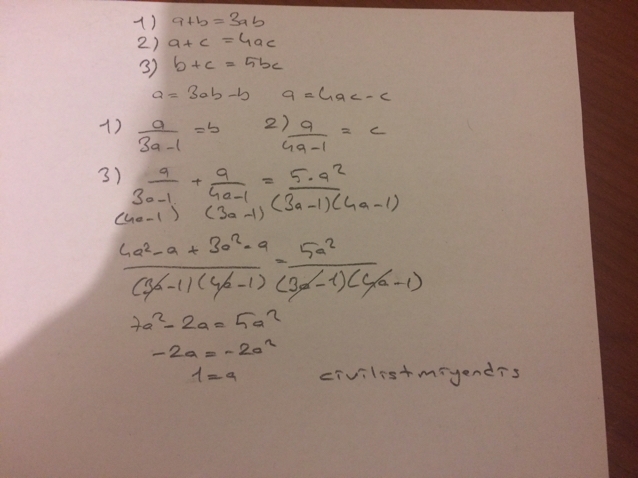 1) a+b=3ab
2) a+c=4ac
3) b+c=5bc
a=3ab-b a=4ac-c
1) a/3a-1 =b 2) a/4a-1 = c
3) a/3a-1 + a/4a-1 = 5.a²/(3a-1)(4a-1)
(4a-1) (3a-1)
4a²-a+3a²-a/(3a-1)(4a-1) = 5a²/(3a-1)(4a-1)
7a²-2a=5a²
-2a=-2a²
1=a civilistmiyendis